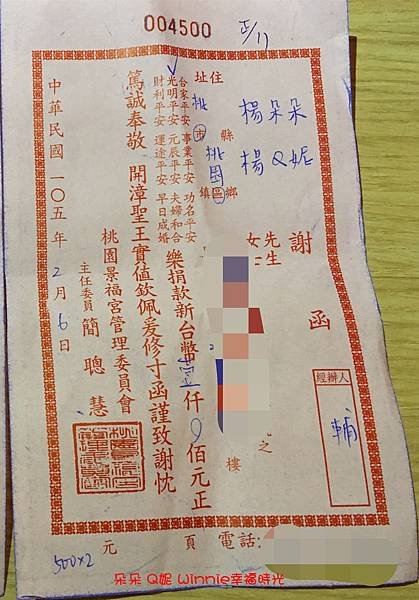 004500
正/11
謝函
楊朵朵
楊Q妮
先生
女士
住址 桃 縣市 桃園 鄉鎮區
之
樓
經辦人
輔
合家平安 事業平安 功名平安
光明平安 元辰平安 夫婦和合
財利平安 運途平安 早日成婚
樂捐款新台幣壹仟0佰元正
篤誠奉敬 開漳聖王實值欽佩爰修寸函謹致謝忱
桃園景福宮管理委員會
主任委員 簡聰慧
中華民國一〇五年2月6日
500x2 元
頁 電話:
朵朵 Q妮 Winnie幸福時光